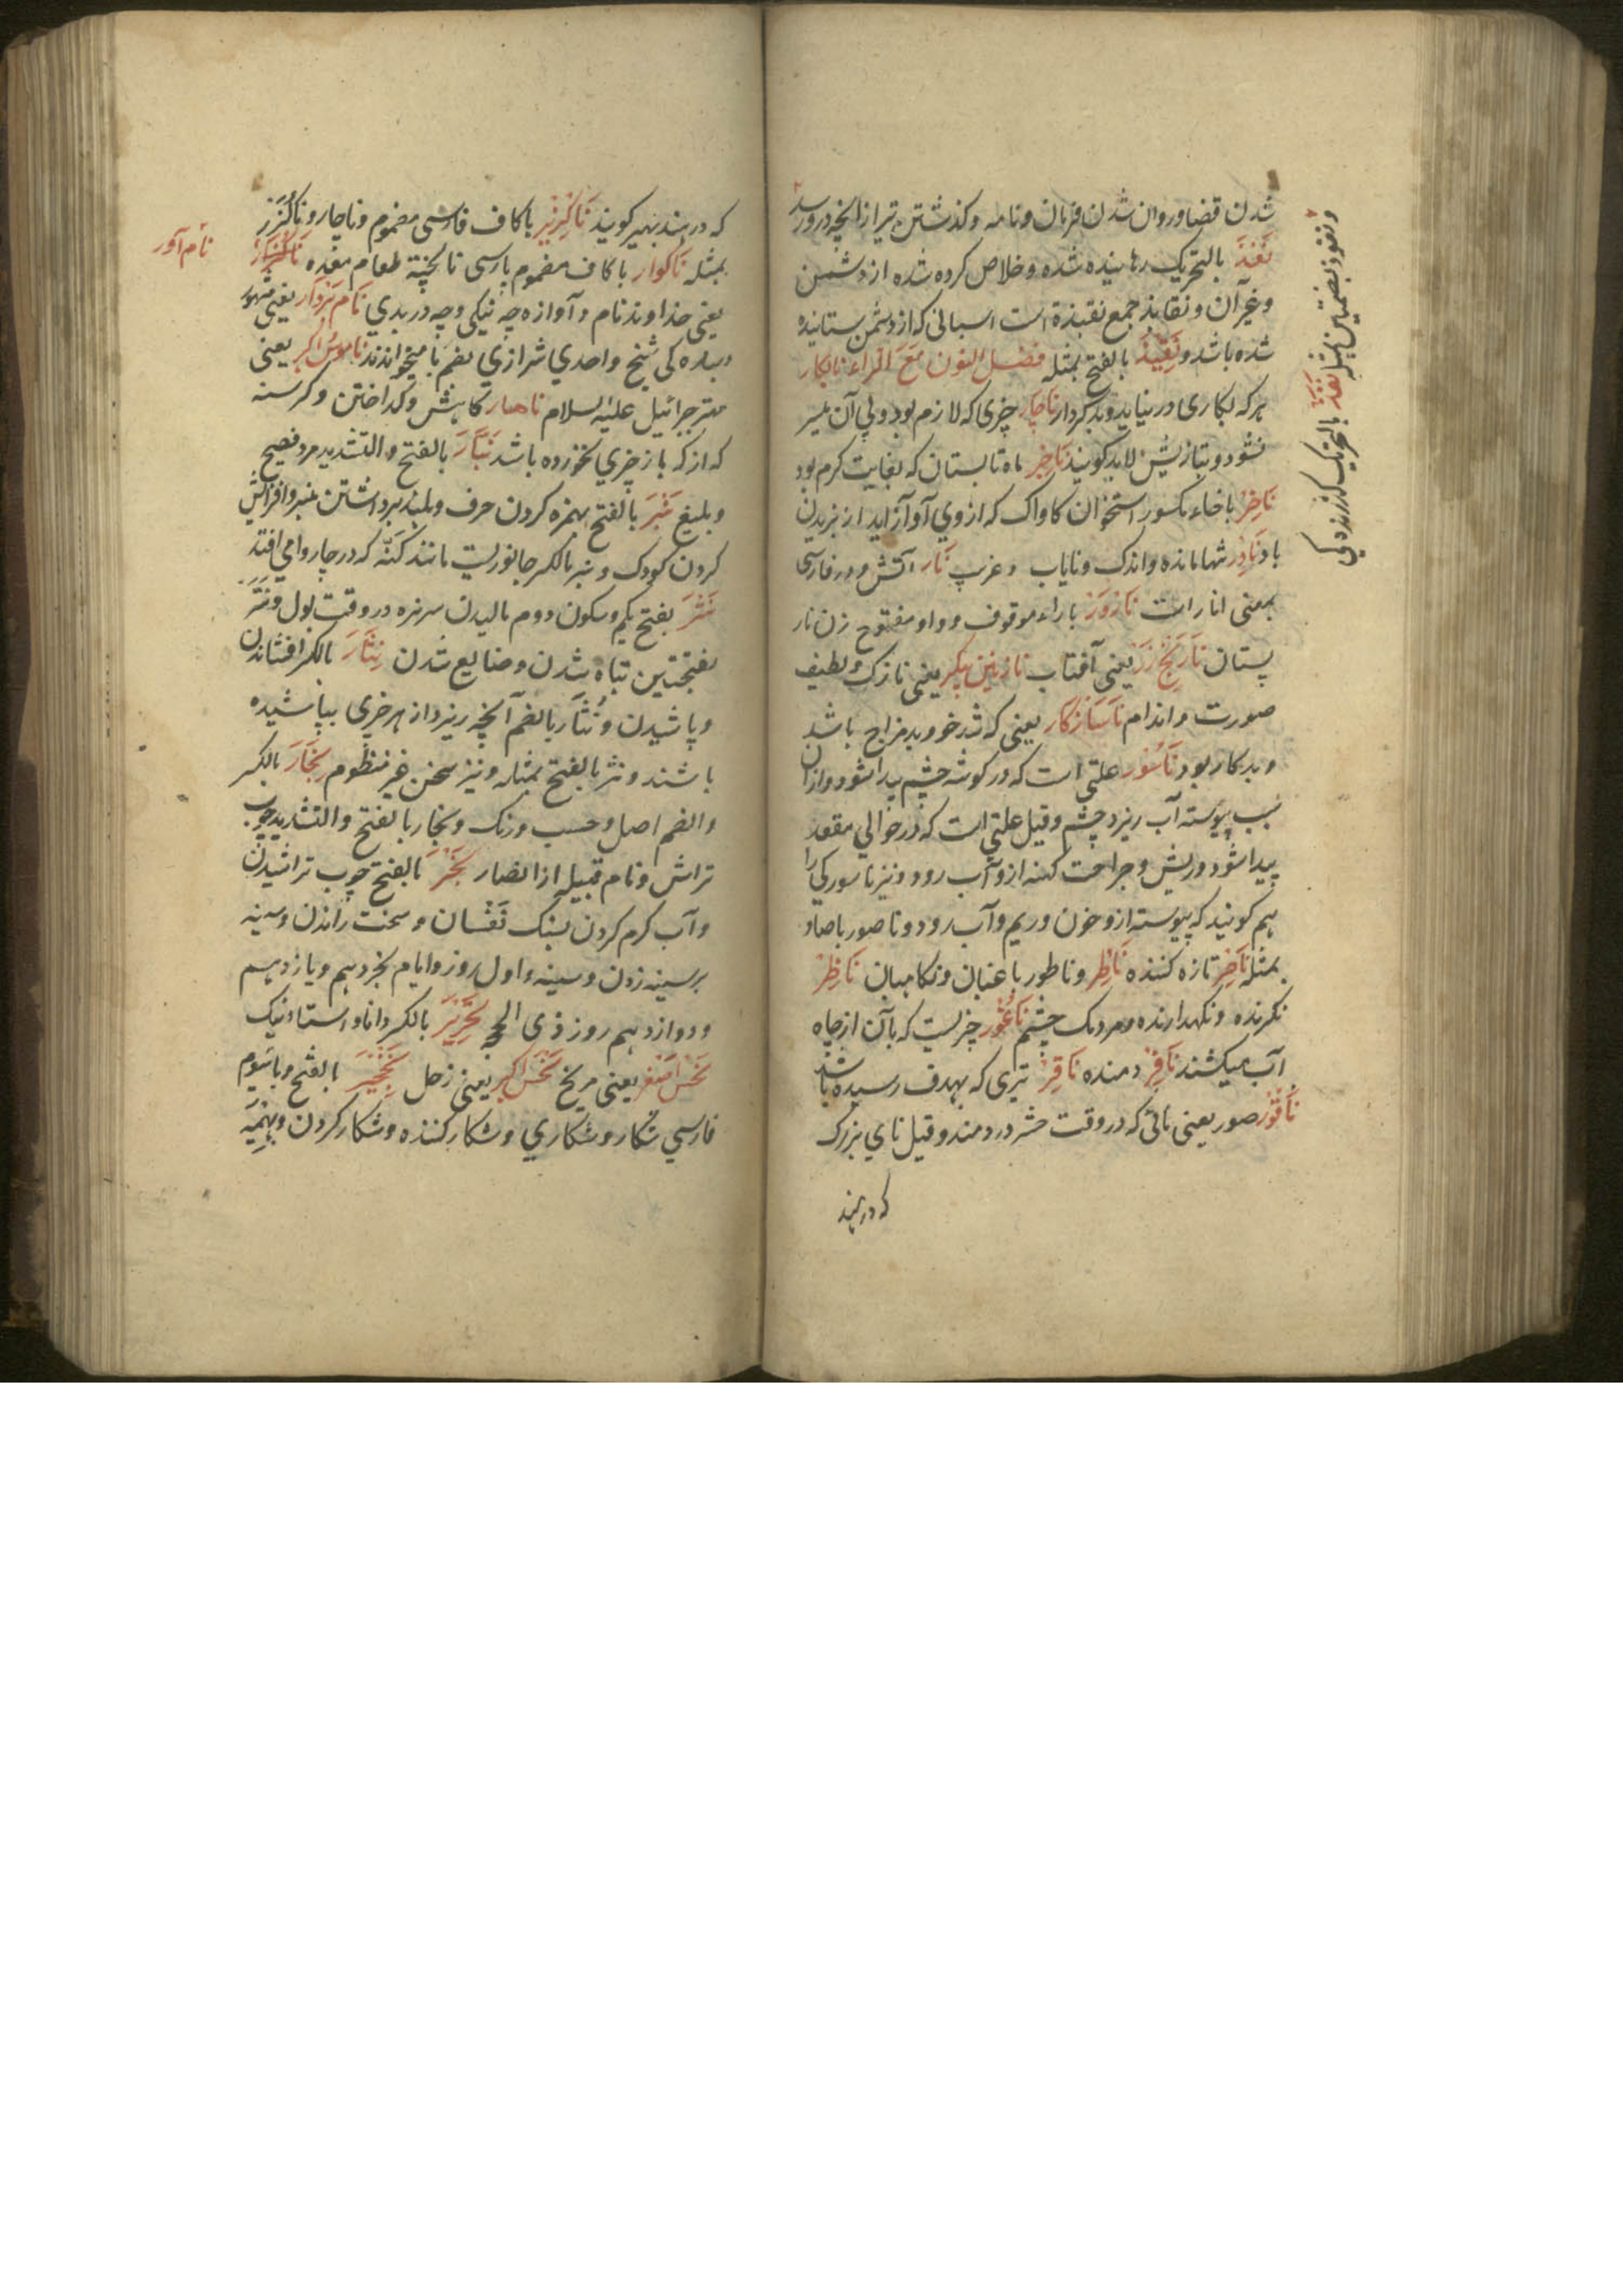 شدن قضا و روان شدن فرمان و نامه و کذشتن تیر از انچه درو رسد
نَفَذَ بالتحریک رهانیده شده و خلاص کرده شده از دشمن
و غیر آن و نقایذ جمع نقیذة است اسبانی که از دشمن ستانیده
شده باشد و نَقِیْذ بالفتح بمثله فصل النون مَعَ الراء نابکار
هر که بکاری در نیاید و بد کردار ناچار چیزی که لازم بود و بی آن میسر
نشود و بتازیش لابد کویند نَاجِر ماه تابستان که بغایت کرم بود
نَاخِرْ با خاء مکسور استخوان کاواک که از وی آواز آید از بزیدن
باد نَادِر تنها مانده و اندک و نایاب و غریب نَار آتش و در فارسی
بمعنی انار است نَارْوَر با راء موقوف و واو مفتوح زن نار
پستان نَارَنج زَر یعنی آفتاب نازنین پیکر یعنی نازک و لطیف
صورت و اندام نَاسَازْکار یعنی که تند خو و بد مزاج باشد
و بد کار بود نَاسُوْر علتی است که در کوشه چشم پیدا شود و ازان
سبب پیوسته آب ریزد چشم و قیل علتی است که در حوالی مقعد
پیدا شود و ریش و جراحت کهنه ازو آب رود و نیز ناسور کی را
هم کویند که پیوسته ازو خون و ریم و آب رود و ناصور با صاد
بمثله نَاضِر تازه کننده نَاطِر و ناطور باغبان و نکاهبان نَاظِرْ
نکرنده و نکهدارنده و مردمک چشم نَاعُوْر چیزیست که بآن از چاه
آب میکشند نَافِرْ دمنده نَاقِرْ تیری که بهدف رسیده باشد
نَاقُوْر صور یعنی نائی که در وقت حشر در دمند و قیل نای بزرک
که در هند
و نفوذ بضمتین بمثله نَفَذَ بالتحریک کذرندکی
که در هند بهیر کویند نَاکُزِیْر با کاف فارسی مضموم و ناچار و ناکُزَر
بمثله نَاکوار با کاف مضموم پارسی نا پخته طعام معده
نام آور
یعنی خداوند نام و آوازه چه نیکی و چه در بدی نَام بَرْدَار یعنی مشهور
شیخ واحدی شرازی بضم با میخوانند ناموس اکبر یعنی
مهتر جبرائیل علیه السلام ناهار کاهش و کداختن و کرسنه
که از کـه باز چیزی نخورده باشد نَبَّارَ بالفتح و التشدید مرد فصیح
و بلیغ نَبْرَ بالفتح همزه کردن حرف و بلند برداشتن منبر و افزایش
کردن کودک و نبر بالکسر جانوریست مانند کَنّه که در چاروا می افتد
نَتْرَ بفتح یکم و سکون دوم مالیدن سر نره در وقت بول و نَتَرَ
بفتحتین تباه شدن و ضایع شدن نِثَارَ بالکسر افشاندن
و پاشیدن و نُثَار بالضم آنچه ریزد از هر چیزی بپاشیده
باشند و نثر بالفتح بمثله و نیز سخن غیر منظوم نِجَارَ بالکسر
و الضم اصل و حسب و رنک و نجار بالفتح و التشدید چوب
تراش و نام قبیله از انصار نَجْرَ بالفتح چوب تراشیدن
و آب کرم کردن بسنک تَفْسان و سخت راندن و سینه
بر سینه زدن و سینه و اول روز و ایام نحر دهم و یازدهم
و دوازدهم روز ذی الحجه نِحْرِیْرَ بالکسر دانا و استاد نیک
نَحْس اَصْغَر یعنی مریخ نَحْس اکبر یعنی زحل نَخْچِیْرَ بالفتح و با سیوم
فارسی شکار و شکاری و شکار کننده و شکار کردن و